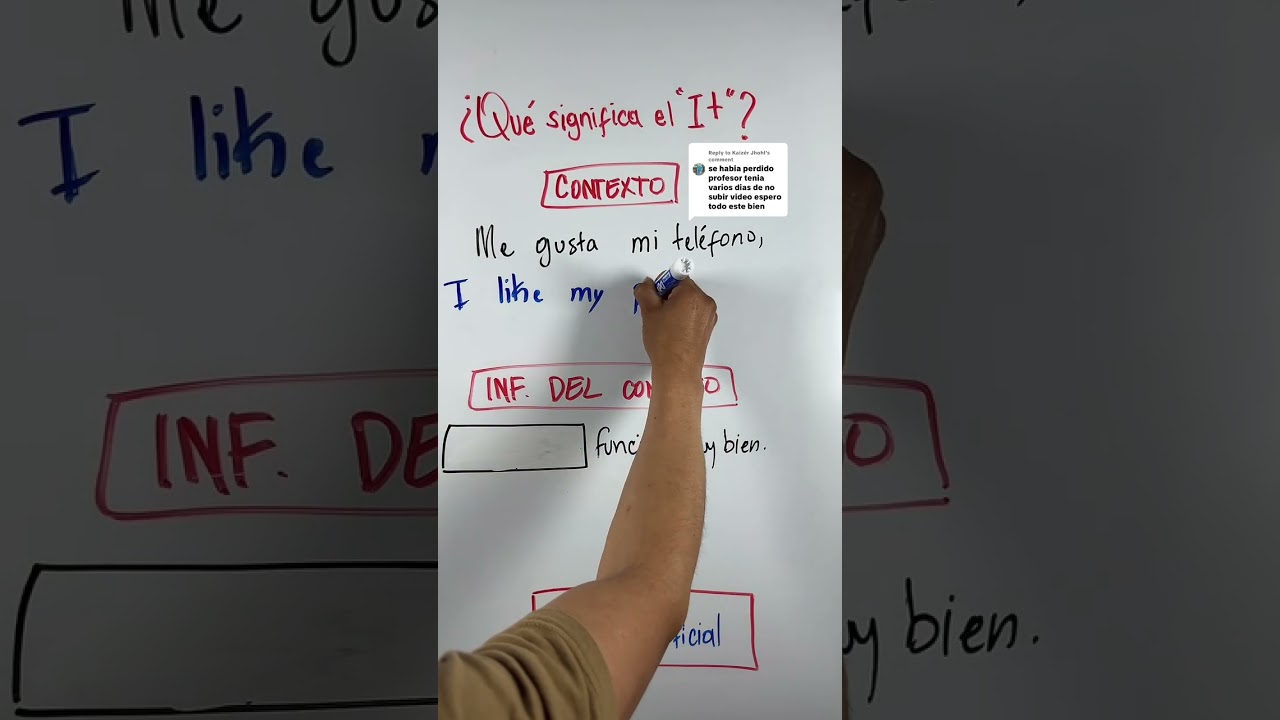 ¿Qué significa el "It"?
Reply to Kaizér Jhohl's
comment
se habia perdido
profesor tenia
varios dias de no
subir video espero
todo este bien
CONTEXTO
Me gusta mi teléfono,
I like my
INF. DEL
bien.